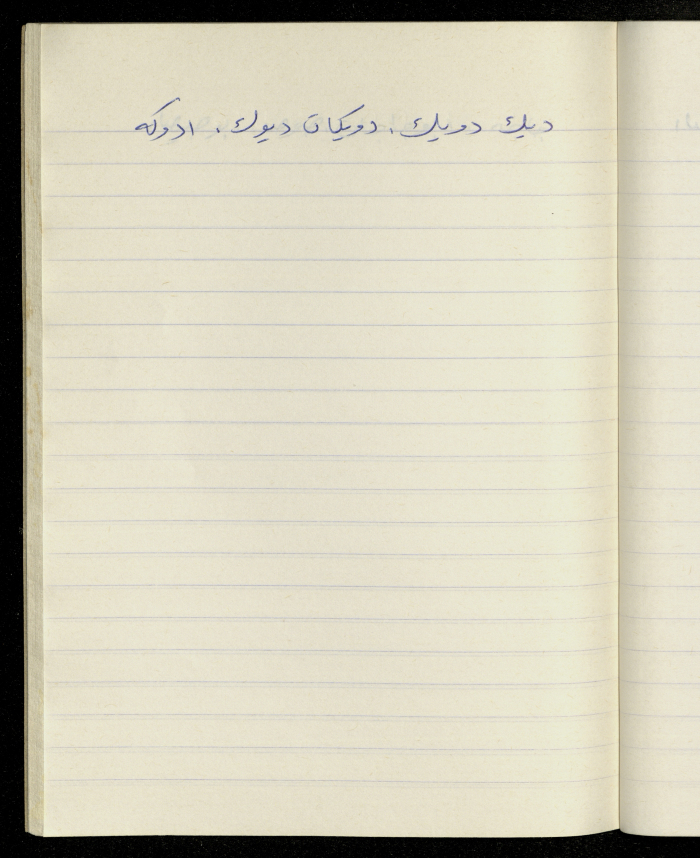 ديك دويك، دويكات ديوك، ادوكه